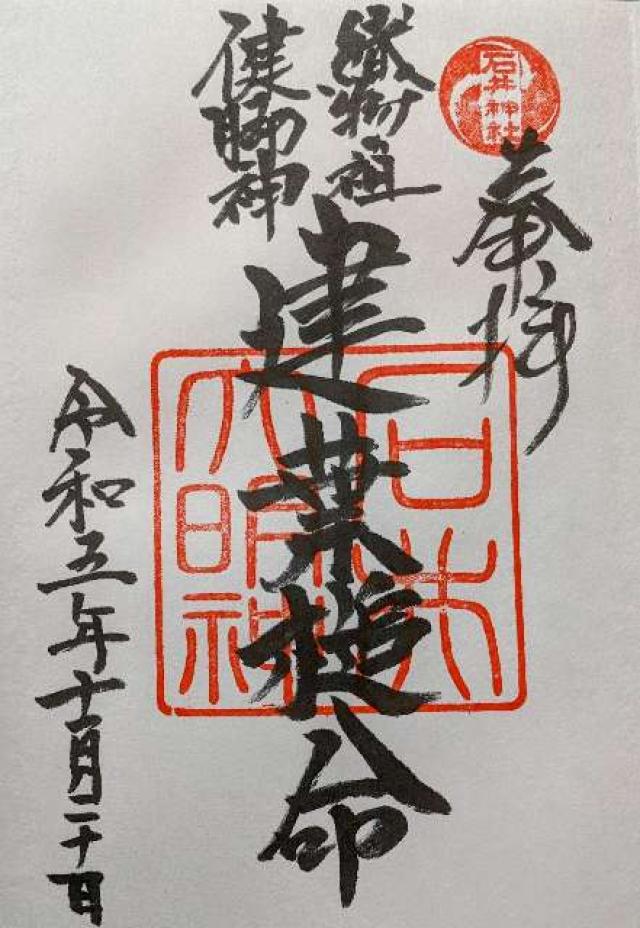 石井神社
奉拝
織物祖
健脚神
建葉槌命
石井
大明神
令和五年十一月二十一日